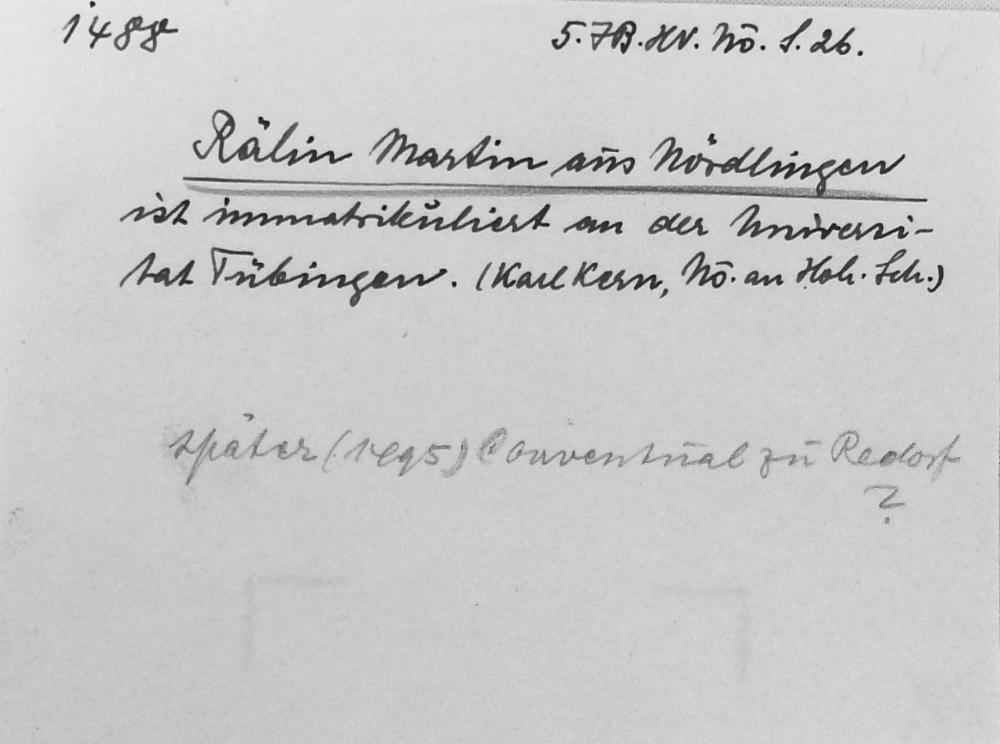 1488 5. JB. HV. Nö. S. 26.
Rälin Martin aus Nördlingen
ist immatrikuliert an der Universi-
tat Tübingen. (Karl Kern, Nö. an Hoh. Sch.)
später (1495) Conventual zu Redorf
?